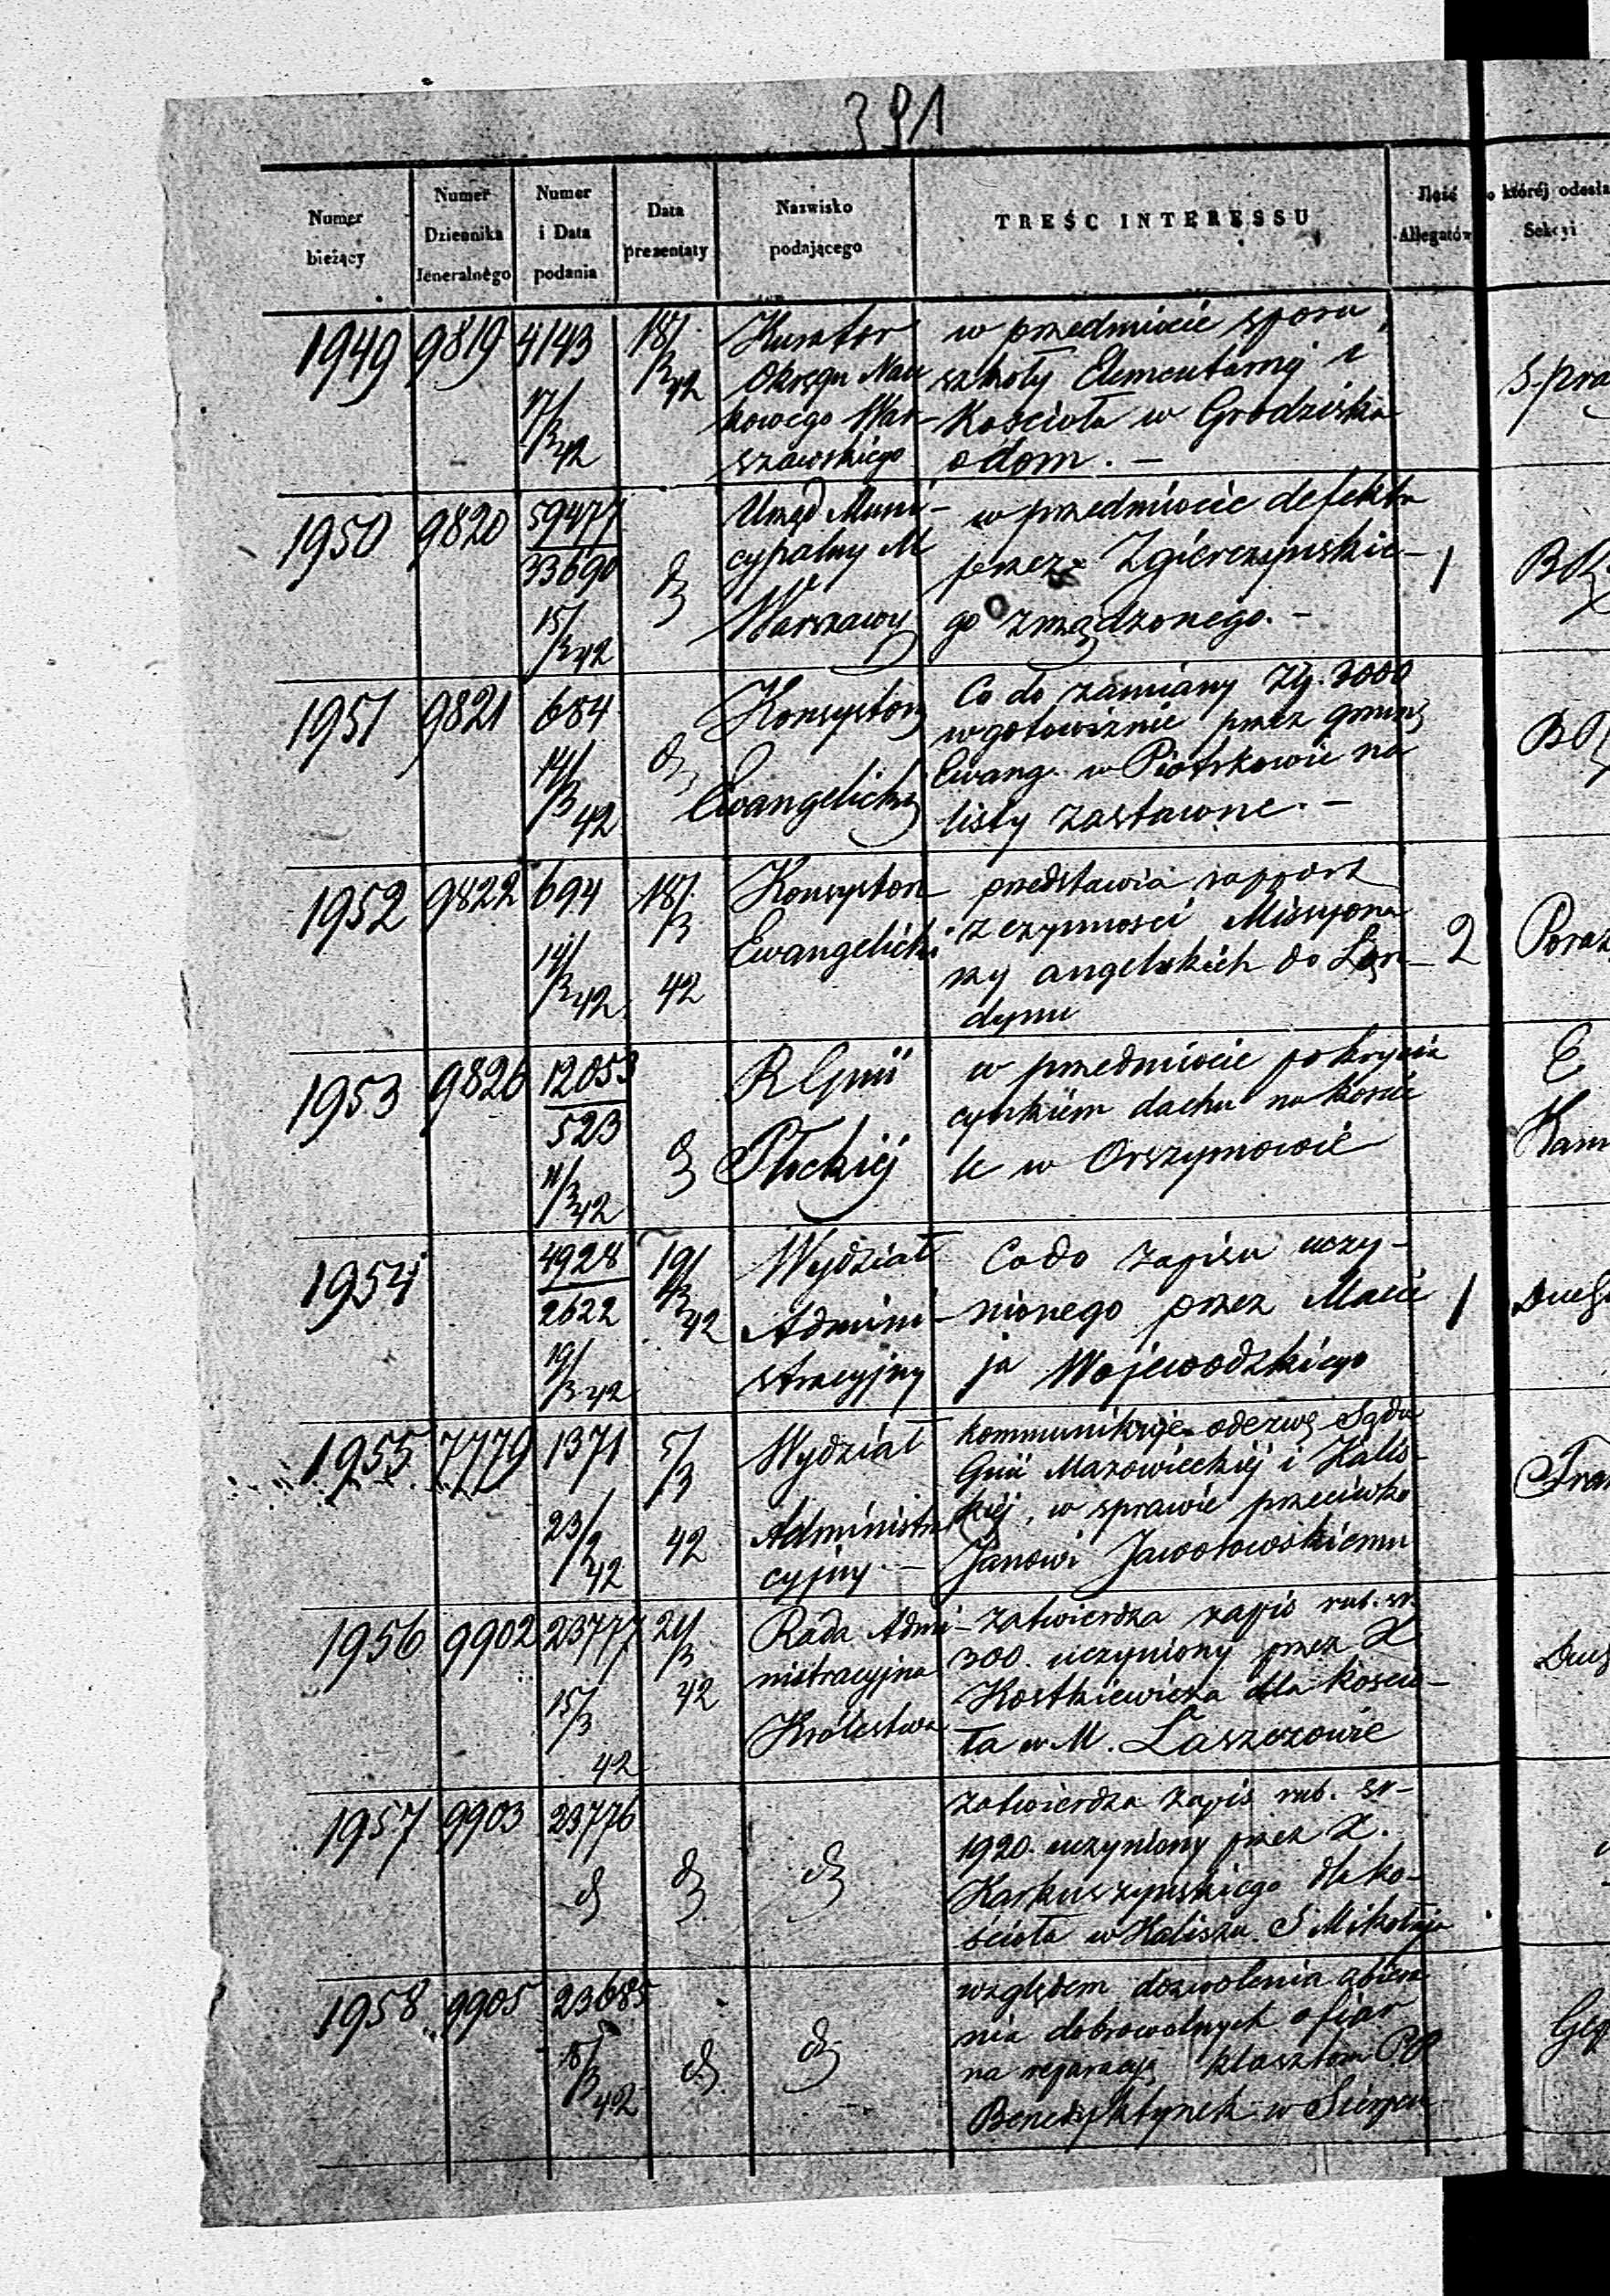 391
Numer bieżący
Numer Dziennika Jeneralnego
Numer i Data podania
Data prezentaty
Nazwisko podającego
TREŚC INTERESSU
Ilość Allegatów
o któréj odesła
Sekcyi
1949 9819 4143 17/3 42 18/3 42
Kurator
Okręgu Nau
kowego War-
szawskiego
w przedmiocie sporu
szkoły Elementarnej i
Kościoła w Grodzisku
o dom. –
S. pra
1950 9820 59477/33690 15/3 42 d
Urząd Muni-
cypalny M
Warszawy
w przedmiocie defektu
przez Zgierczyńskie-
go zrządzonego. –
1
1951 9821 684 14/3 42 d
Konsystorz
Ewangelicki
Co do zamiany Zł. 3000
w gotowiznie przez gminę
Ewang. w Piotrkowie na
listy zastawne. –
1952 9822 694 14/3 42 18/3 42
Konsystorz
Ewangelicki
przedstawia rapport
z czynności Missyona
rzy angelskich do Lon-
dynu
2
1953 9826 12053/523 11/3 42 d
R Gnii
Płockiéj
w przedmiocie pokrycia
cynkiem dachu na kości
le w Orszymowie
E
1954 4928/2622 19/3 42 19/3 42
Wydział
Admini-
stracyjny
Co do zapisu uczy-
nionego przez Macie
ja Wojewodzkiego
1
Duch
1955 7779 1371 23/2 42 5/3 42
Wydział
Administra
cyjny. –
kommunikuje odezwę Sądu
Gnii Mazowieckiéj i Kalis-
kiéj, w sprawie przeciwko
Janowi Jaworowskiemu
1956 9902 23777 15/3 42 21/3 42
Rada Admi-
nistracyjna
Królestwa
zatwierdza zapis rub. sr.
300. uczyniony przez X
Kostkiewicza dla kościo-
ła w M. Łaszczowie
Duch
1957 9903 23776 d d d
zatwierdza zapis rub. sr-
1920. uczyniony przez X.
Karkuszyńskiego dla ko-
ścioła w Kaliszu S Mikołaja
1958 9905 23685 15/3 42 d d
względem dozwolenia zbiera
nia dobrowolnych ofiar
na reparacją klasztoru PP
Benedyktynek w Sierpcu